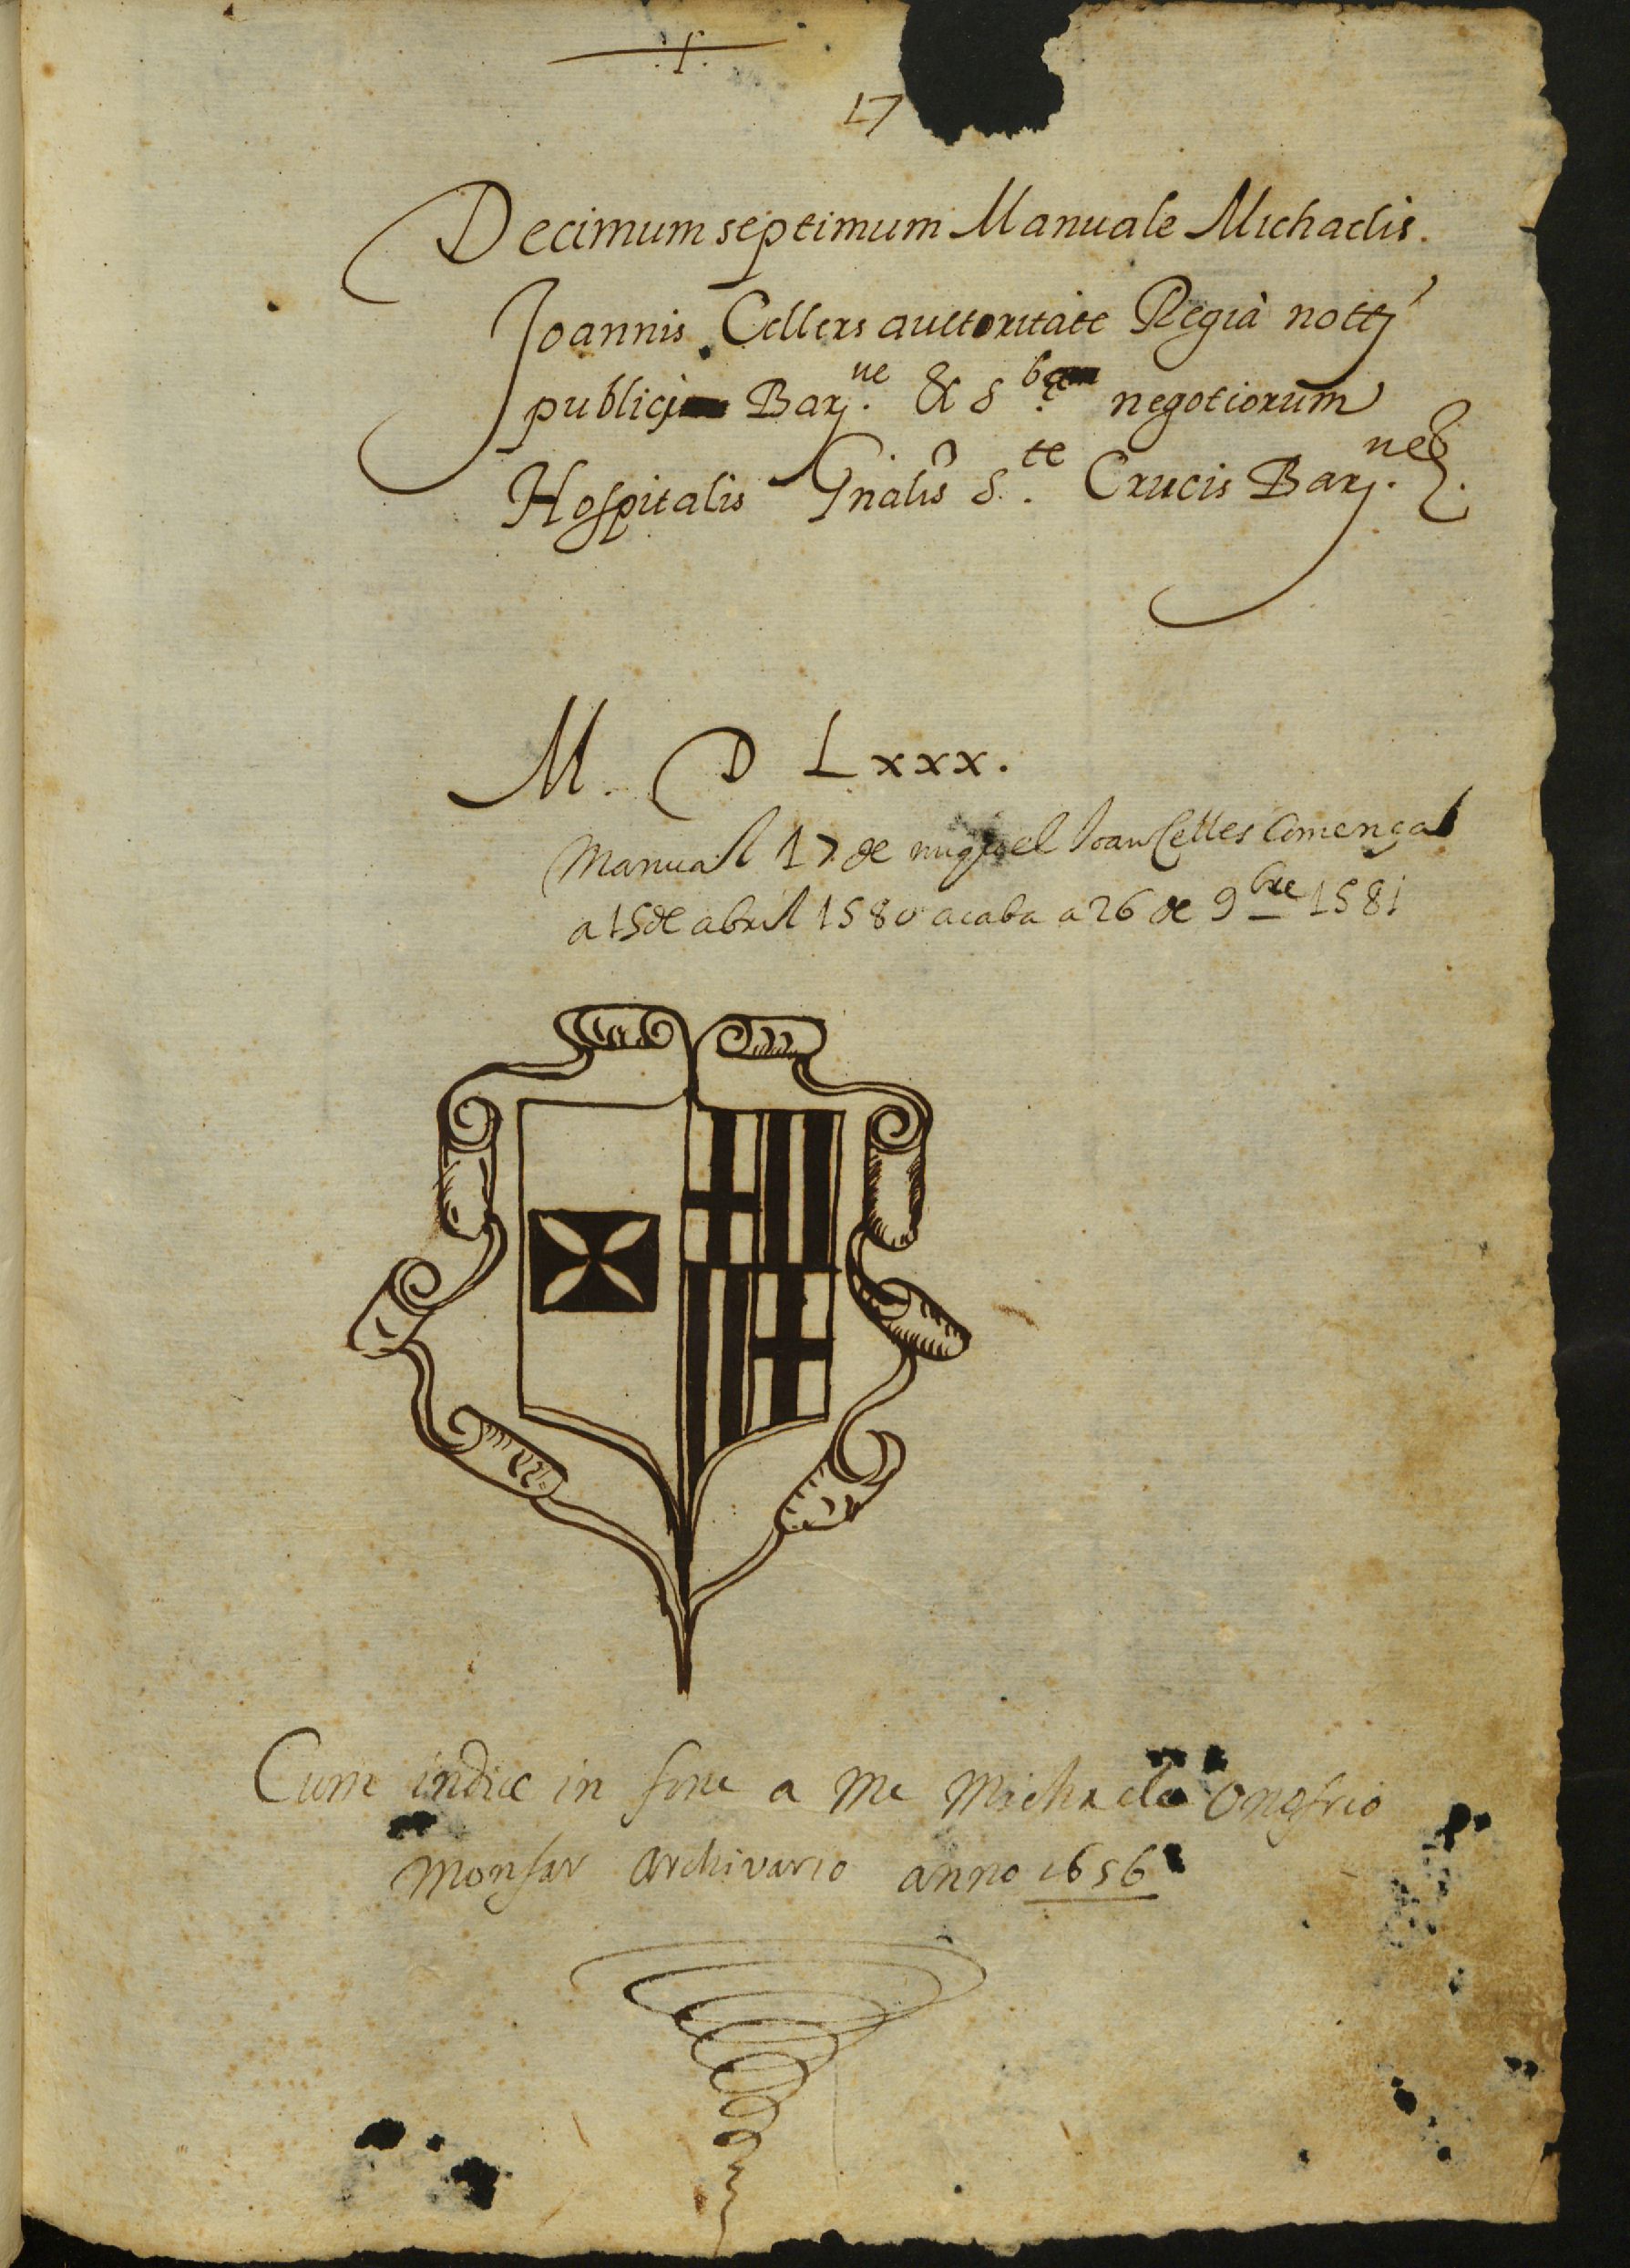 17
Decimum septimum Manuale Michaelis.
Joannis Cellers auctoritate Regià nottj
publicj Barj.ne & S.ba negotiorum
Hospitalis Gnalis S.te Crucis Barj.ne
M. D Lxxx.
Manual 17 de miquel Joan Celles Comença
a 15 de abril 1580 acaba a 26 de 9bre 1581
Cum indice in fine a me Michaele Onofrio
Monsar Archivario anno 1656